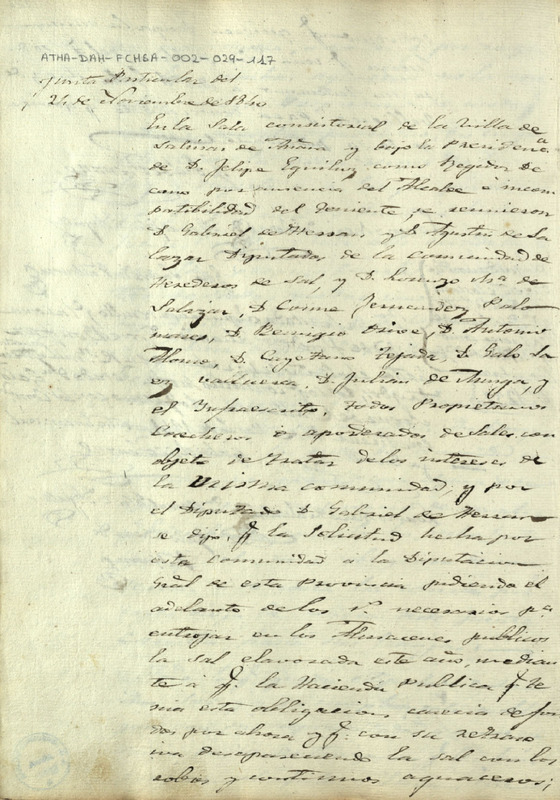 ATHA-DAH-FCHEA-002-029-117
Junta Particular del
24 de Noviembre de 1840
En la Sala consistorial de la Villa de
Salinas de Añana y bajo la Presidencia
de D. Felipe Eguiluz como Regidor De
cano por ausencia del Alcalde é incom
patibilidad del Teniente, se reunieron
D. Gabriel de Herran y D. Agustin de Sa
lazar Diputados de la comunidad de
Herederos de Sal, y D. Lorenzo Mª de
Salazar, D. Cosme Fernandez Palo
mares, D. Remigio D. Antonio
Alonso, D. Cayetano Tejada D. Galo
D. Julian de y
el Infraescrito, todos Propietarios
Cosecheros ó apoderados de Sales, con
objeto de tratar de los intereses de
la misma comunidad: y por
el Diputado D. Gabriel de Herran
se dijo, q. la Solicitud hecha por
esta comunidad á la Diputacion
Gral de esta Provincia pidiendo el
adelanto de los r.s necesarios pª
entrojar en los Almacenes publicos
la sal elavorada este año, median
te á q. la Hacienda Publica q. te
nia esta obligacion, carecia de fon
dos por ahora y q. con su retraso
iva desapareciendo la sal con los
robos y continuos aguaceros,